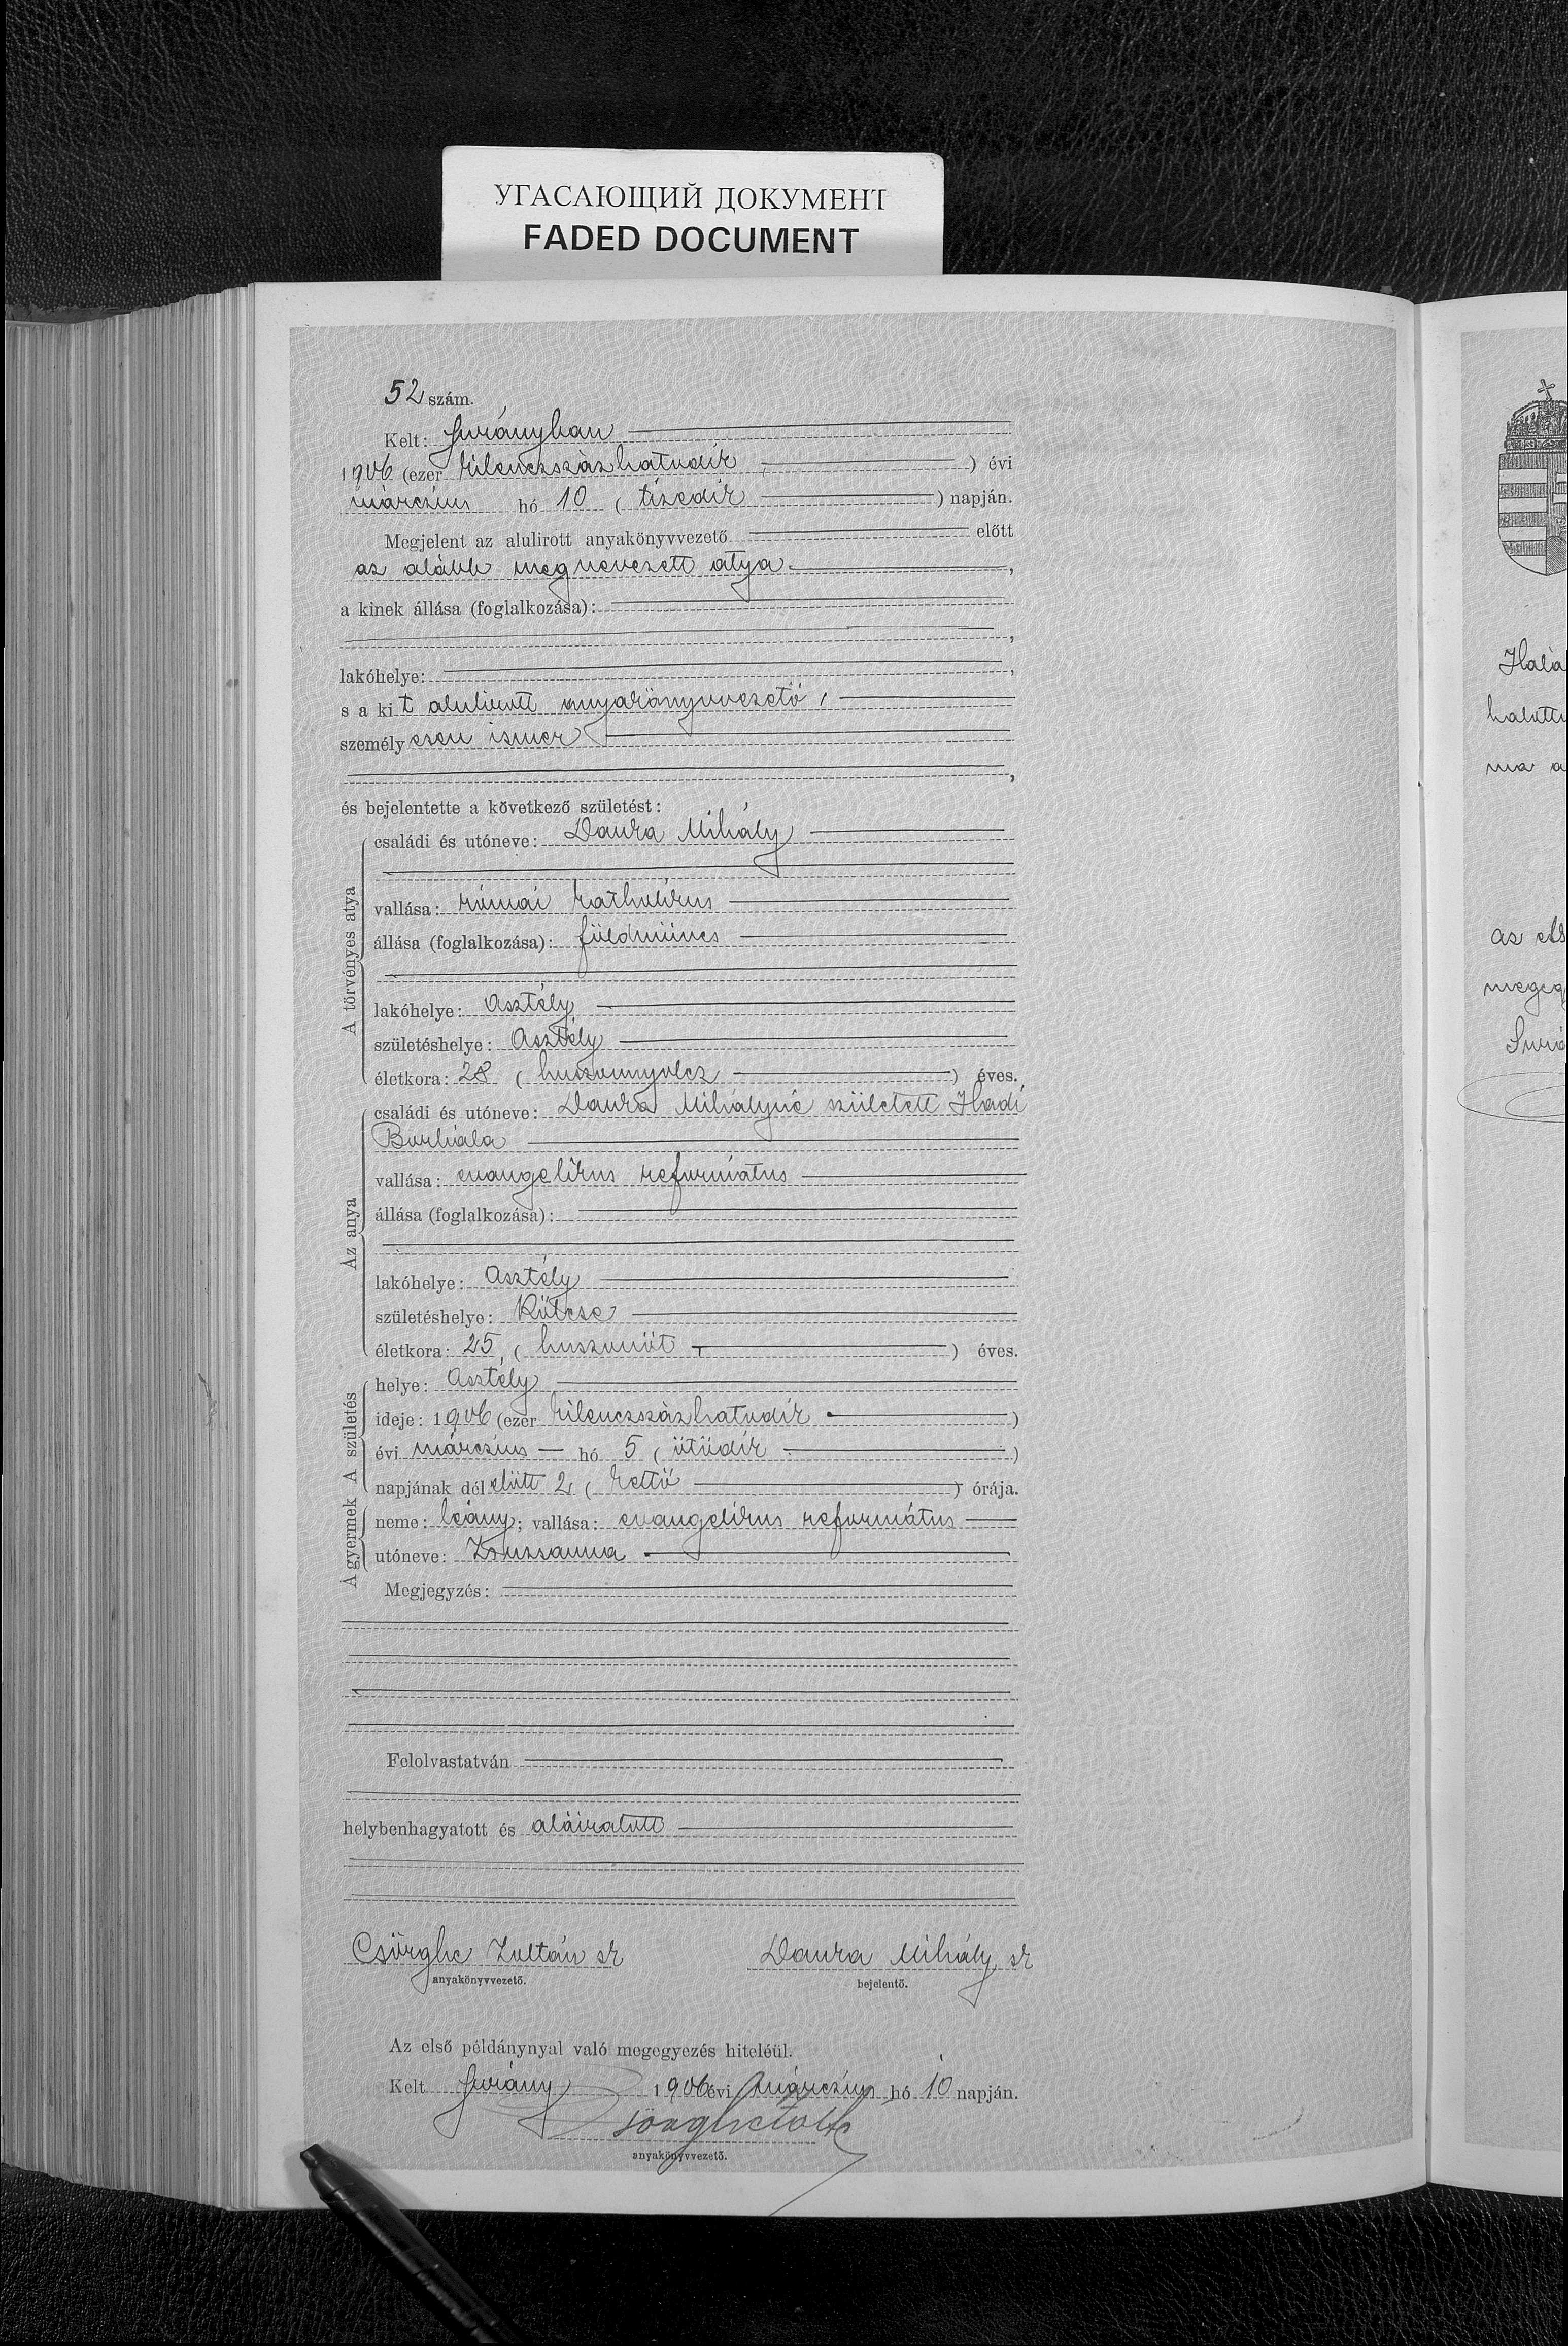 УГАСАЮЩИЙ ДОКУМЕНТ
FADED DOCUMENT
52 szám.
Kelt: Surányban
1906 (ezer kilenczszázhatodik) évi
márczius hó 10 (tizedik) napján.
Megjelent az alulirott anyakönyvvezető előtt
az alább megnevezett atya,
a kinek állása (foglalkozása):
,
lakóhelye: ,
s a kit alulirott anyakönyvvezető,
személyesen ismer
,
és bejelentette a következő születést:
A törvényes atya
családi és utóneve: Daura Mihály
vallása: római katholikus
állása (foglalkozása): földmüves
lakóhelye: Asztély
születéshelye: Asztély
életkora: 28 (huszonnyolcz) éves.
Az anya
családi és utóneve: Daura Mihályné született Hadi
Borbála
vallása: evangelikus református
állása (foglalkozása):
lakóhelye: Asztély
születéshelye: Kölcse
életkora: 25 (huszonöt) éves.
A születés
helye: Asztély
ideje: 1906 (ezer kilenczszázhatodik)
évi márczius hó 5 (ötödik)
napjának délelőtt 2 (kettő) órája.
A gyermek
neme: leány; vallása: evangelikus református
utóneve: Zsuzsanna
Megjegyzés:
Felolvastatván
helybenhagyatott és aláiratott
Csörghe Zoltán sk Daura Mihály sk
anyakönyvvezető. bejelentő.
Az első példánynyal való megegyezés hiteléül.
Kelt Surány 1906 évi márczius hó 10 napján.
anyakönyvvezető.
ma a